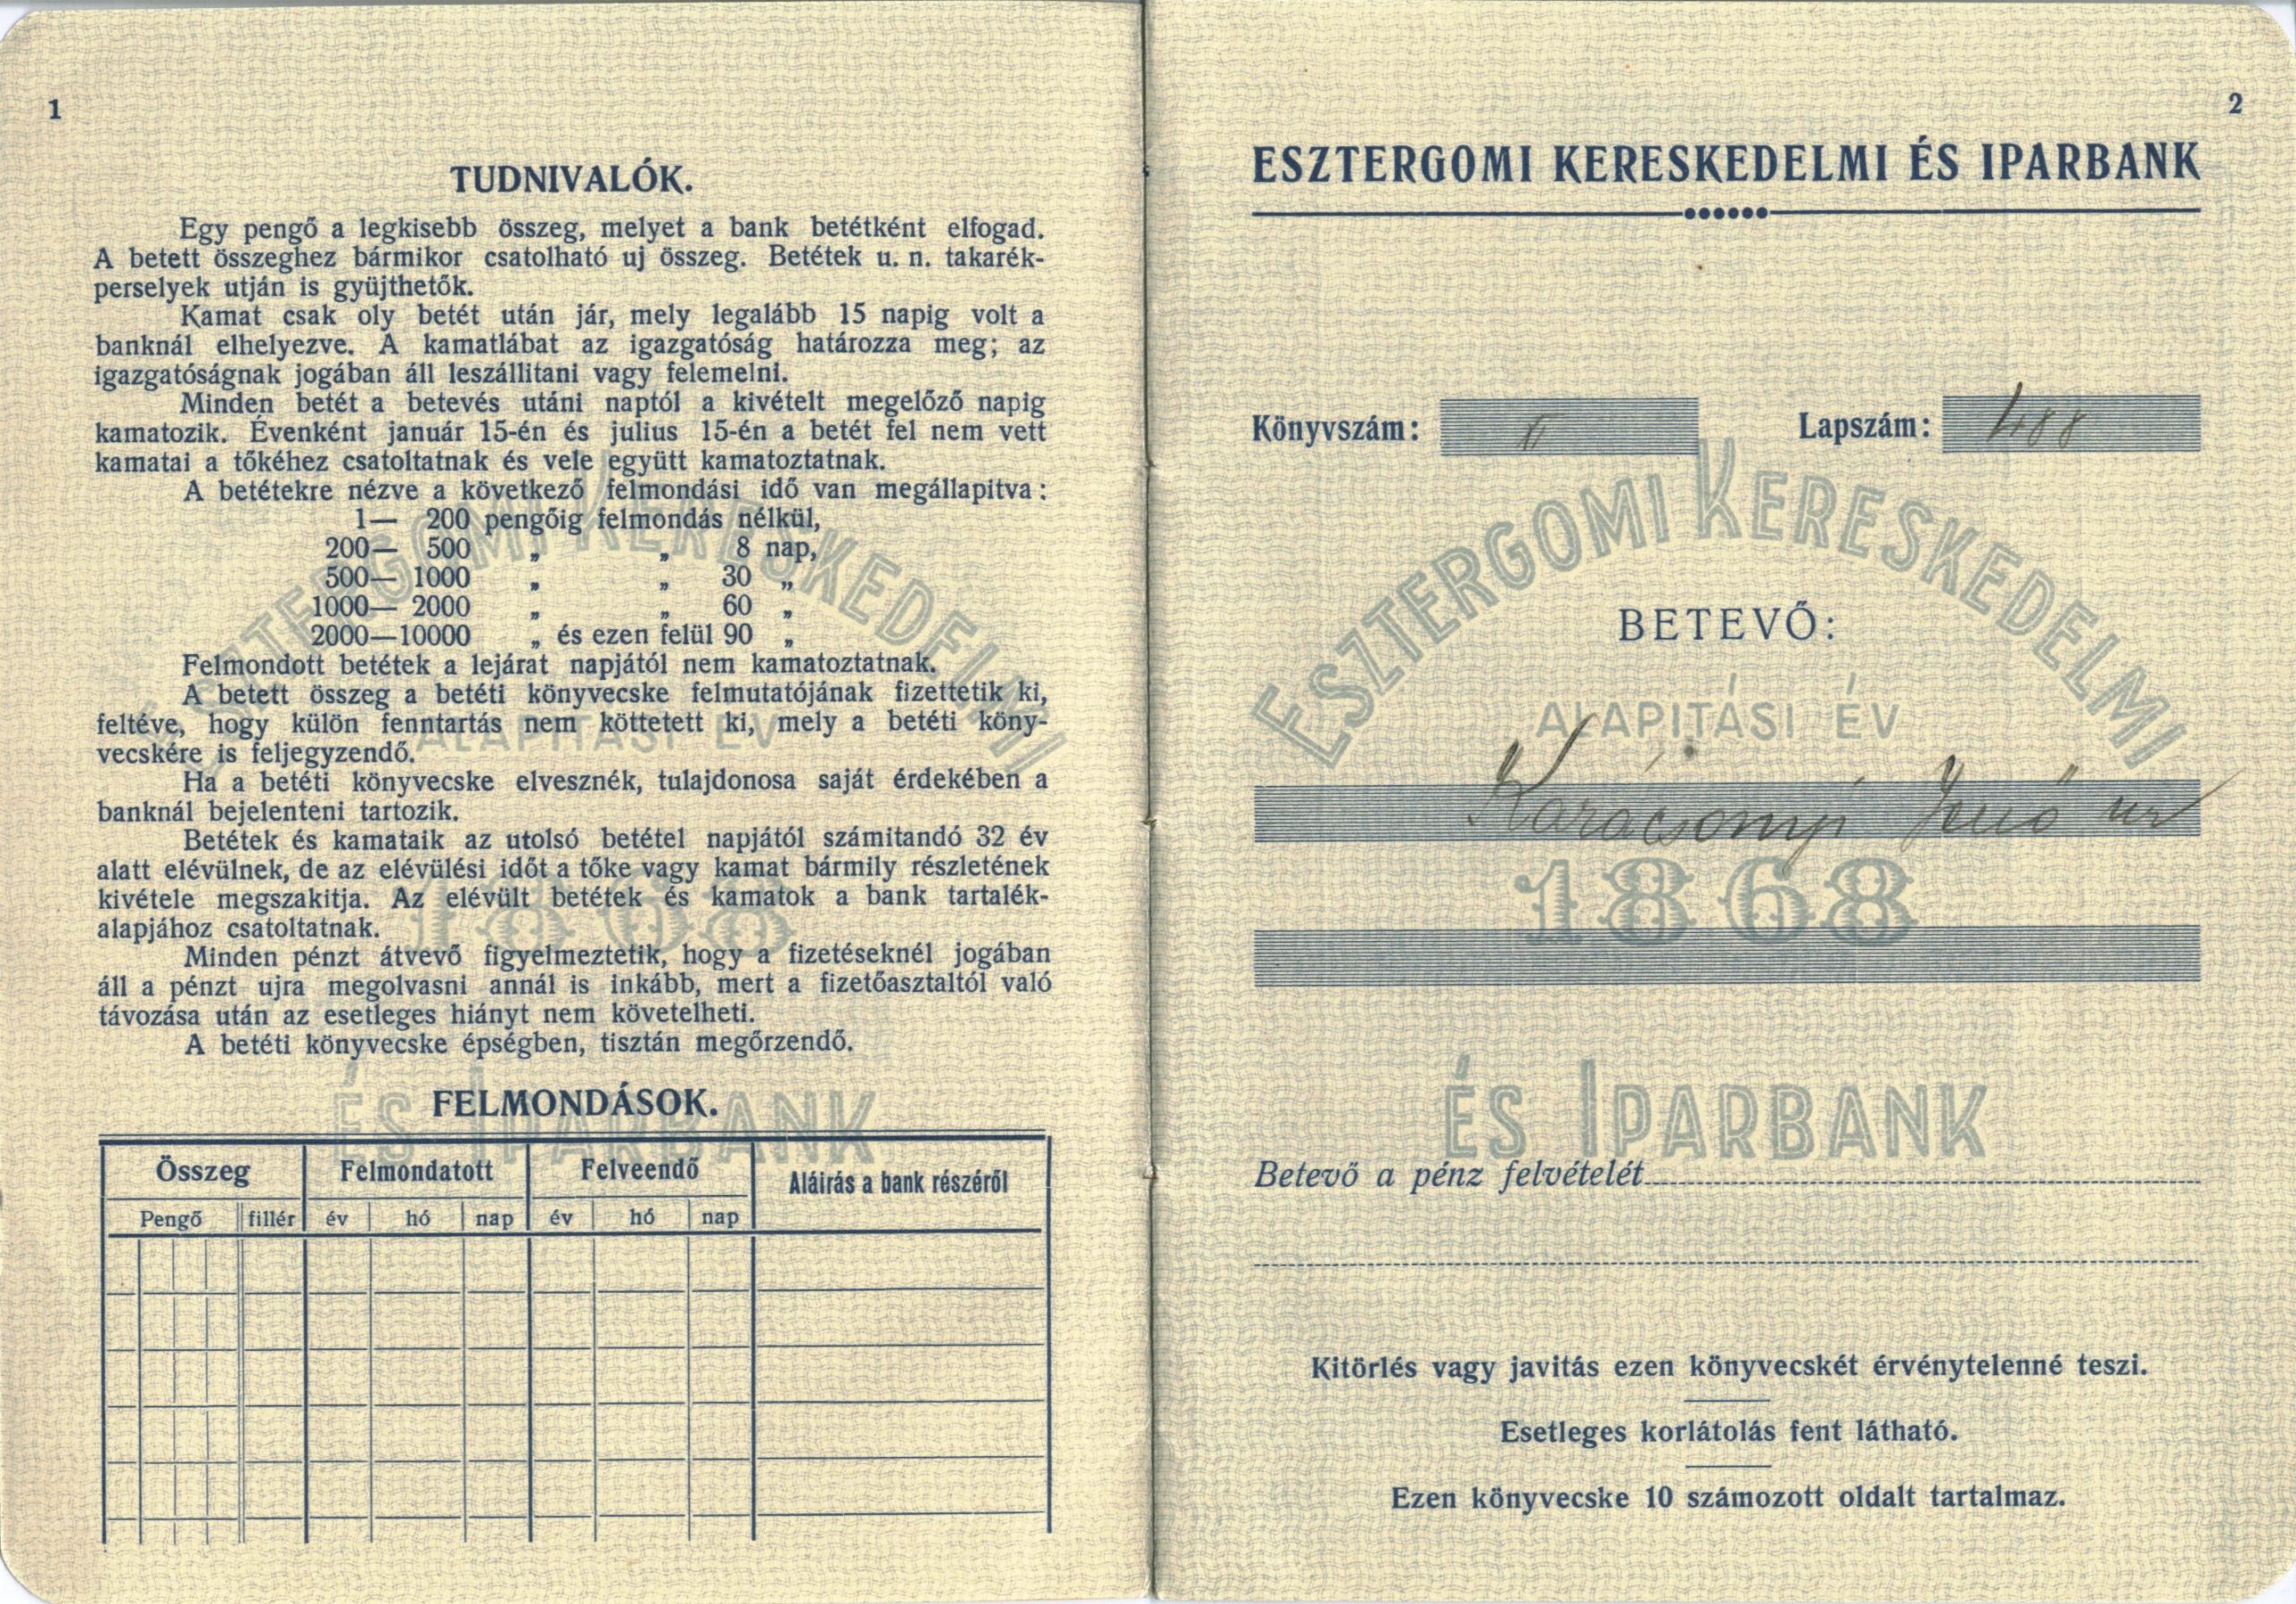 1
TUDNIVALÓK.
Egy pengő a legkisebb összeg, melyet a bank betétként elfogad.
A betett összeghez bármikor csatolható uj összeg. Betétek u. n. takarék-
perselyek utján is gyüjthetők.
Kamat csak oly betét után jár, mely legalább 15 napig volt a
banknál elhelyezve. A kamatlábat az igazgatóság határozza meg; az
igazgatóságnak jogában áll leszállitani vagy felemelni.
Minden betét a betevés utáni naptól a kivételt megelőző napig
kamatozik. Évenként január 15-én és julius 15-én a betét fel nem vett
kamatai a tőkéhez csatoltatnak és vele együtt kamatoztatnak.
A betétekre nézve a következő felmondási idő van megállapitva:
1— 200 pengőig felmondás nélkül,
200— 500 „ „ 8 nap,
500— 1000 „ „ 30 „
1000— 2000 „ „ 60 „
2000—10000 „ és ezen felül 90 „
Felmondott betétek a lejárat napjától nem kamatoztatnak.
A betett összeg a betéti könyvecske felmutatójának fizettetik ki,
feltéve, hogy külön fenntartás nem köttetett ki, mely a betéti köny-
vecskére is feljegyzendő.
Ha a betéti könyvecske elvesznék, tulajdonosa saját érdekében a
banknál bejelenteni tartozik.
Betétek és kamataik az utolsó betétel napjától számitandó 32 év
alatt elévülnek, de az elévülési időt a tőke vagy kamat bármily részletének
kivétele megszakitja. Az elévült betétek és kamatok a bank tartalék-
alapjához csatoltatnak.
Minden pénzt átvevő figyelmeztetik, hogy a fizetéseknél jogában
áll a pénzt ujra megolvasni annál is inkább, mert a fizetőasztaltól való
távozása után az esetleges hiányt nem követelheti.
A betéti könyvecske épségben, tisztán megőrzendő.
FELMONDÁSOK.
Összeg Felmondatott Felveendő Aláirás a bank részéről
Pengő fillér év hó nap év hó nap
ESZTERGOMI KERESKEDELMI
ALAPITÁSI ÉV
1868
ÉS IPARBANK
2
ESZTERGOMI KERESKEDELMI ÉS IPARBANK
Könyvszám: II Lapszám: 488
ESZTERGOMI KERESKEDELMI
BETEVŐ:
ALAPITÁSI ÉV
Karácsonyi Jenő ur
1868
ÉS IPARBANK
Betevő a pénz felvételét
Kitörlés vagy javitás ezen könyvecskét érvénytelenné teszi.
Esetleges korlátolás fent látható.
Ezen könyvecske 10 számozott oldalt tartalmaz.